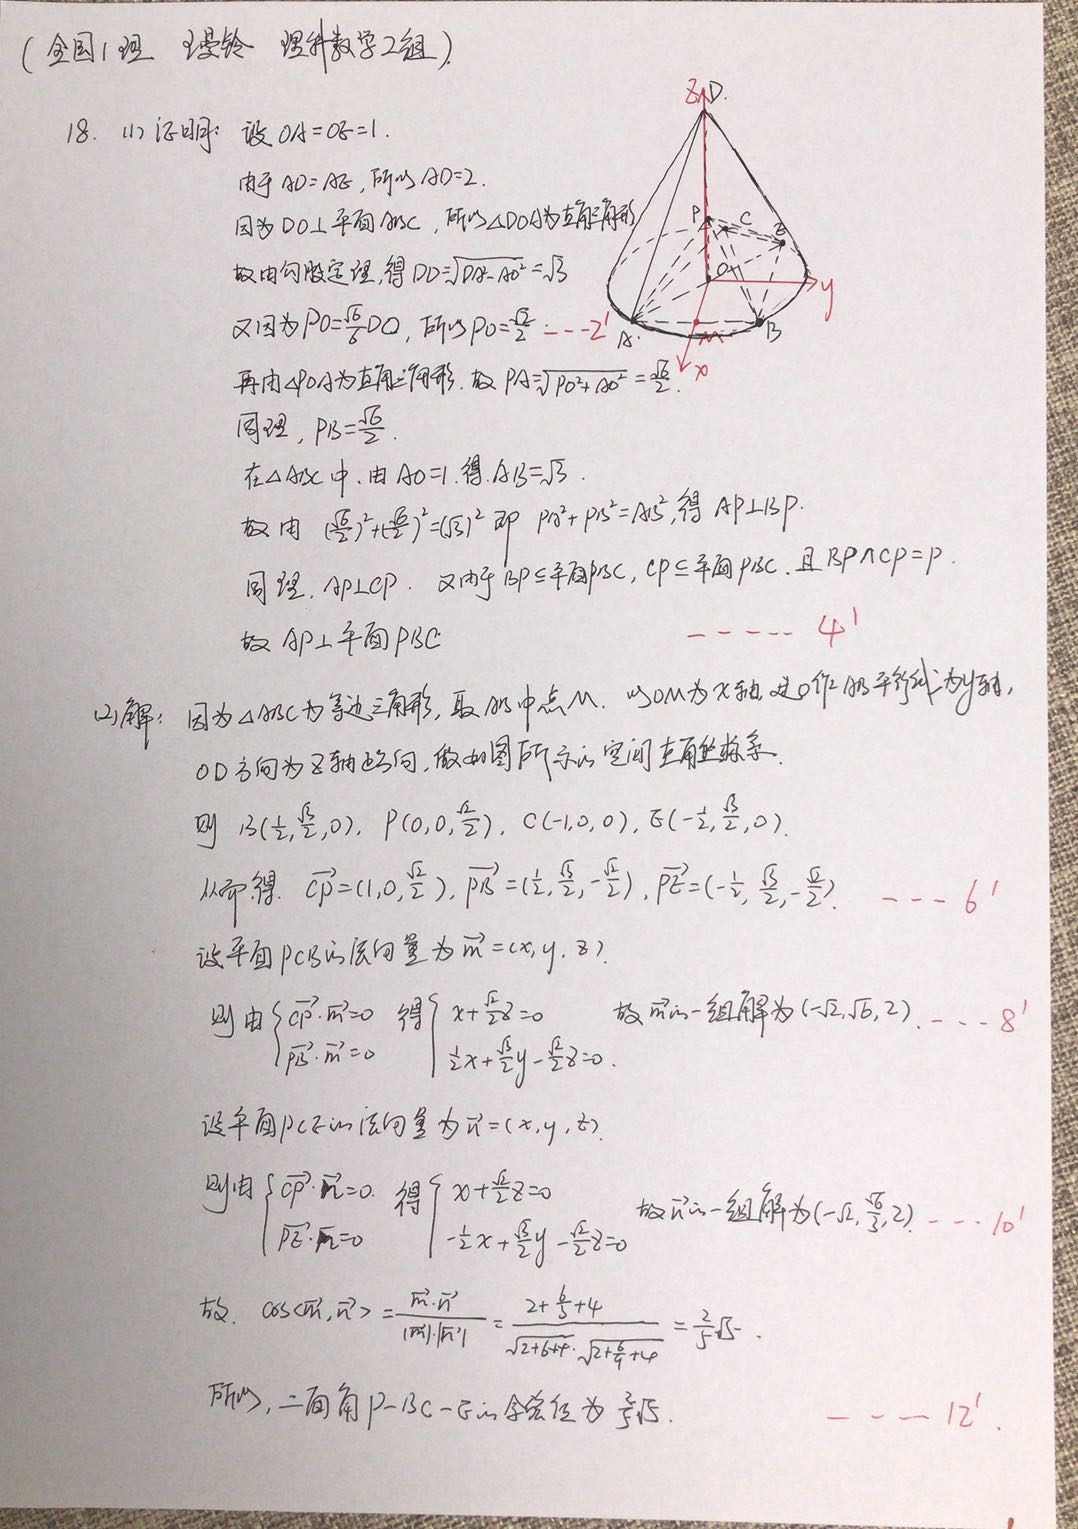 (全国1理 理科数学2组).
18. (1) 证明: 设OA=OE=1.
由于AD=AE, 所以AD=2.
因为DO⊥平面ABC, 所以△DOA为直角三角形
故由勾股定理,得DO=√(DA²-AO²)=√3
又因为PO=√6/6 DO, 所以PO=√2/2. ---2'
再由△POA为直角三角形. 故PA=√(PO²+AO²)=√6/2.
同理, PB=√6/2.
在△ABC中, 由AO=1. 得. AB=√3.
故由 (√6/2)²+(√6/2)²=(√3)² 即 PA²+PB²=AB², 得 AP⊥BP.
同理, AP⊥CP. 又由于BP⊆平面PBC, CP⊆平面PBC. 且BP∩CP=P.
故AP⊥平面PBC ----- 4'
(2)解: 因为△ABC为等边三角形, 取AB中点M. 以OM为x轴, 过O作AB平行线为y轴,
OD方向为Z轴正方向, 做如图所示的空间直角坐标系.
则 B(1/2, √3/2, 0), P(0, 0, √2/2), C(-1, 0, 0), E(-1/2, √3/2, 0).
从而得. CP→=(1, 0, √2/2), PB→=(1/2, √3/2, -√2/2), PE→=(-1/2, √3/2, -√2/2). --- 6'
设平面PCB的法向量为m→=(x, y, z).
则由{CP→·m→=0 得{x+√2/2 z=0 故m→的一组解为(-√2, √6, 2). ---8'
PB→·m→=0 1/2 x+√3/2 y-√2/2 z=0.
设平面PCE的法向量为n→=(x, y, z).
则由{CP→·n→=0. 得{x+√2/2 z=0 故n→的一组解为(-√2, √6/3, 2) ---10'
PE→·n→=0 -1/2 x+√3/2 y-√2/2 z=0
故. cos<m→, n→>=m→·n→/|m→|·|n→|=(2+6/3+4)/(√(2+6+4)·√(2+6/9+4))=2/5 √5.
所以, 二面角P-BC-E的余弦值为2/5 √5. ---12'.
Z
D.
P
C
E
O
y
A.
M
B
x